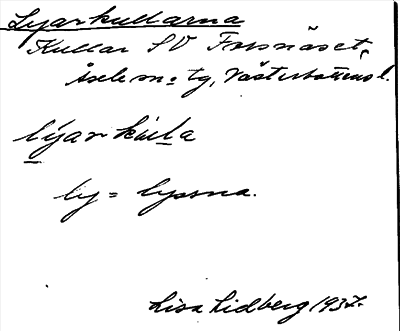 Lyarkullarna
Kullar SV Forsnäset,
Åsele sn o tg, Västerbottens l.
lýarkúlla
ly = lyssna.
Lisa Lidberg 1937.